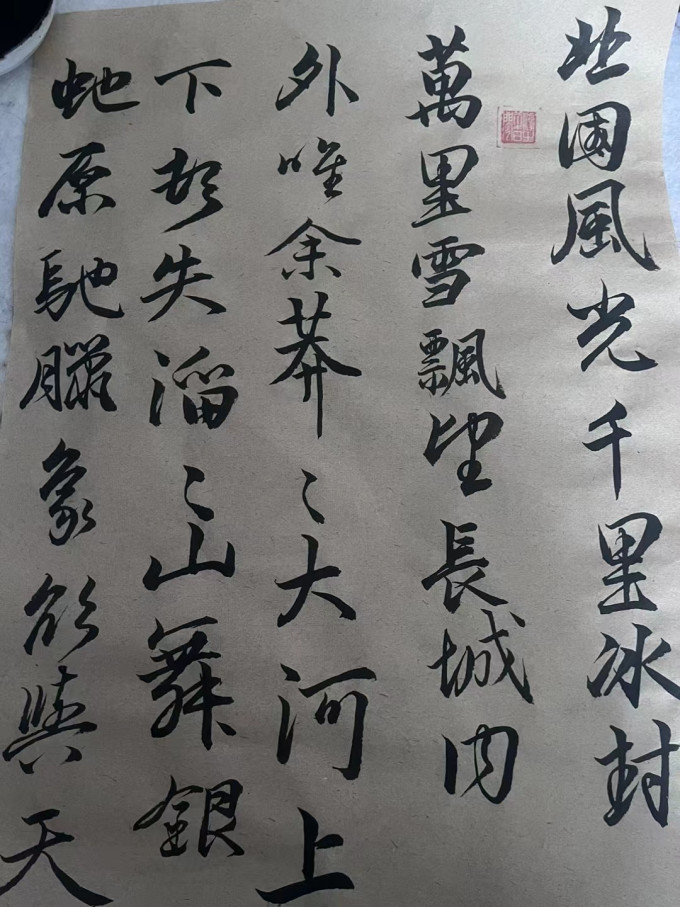 北國風光千里冰封
萬里雪飄望長城内
外唯余莽〻大河上
下頓失滔〻山舞銀
蛇原馳臘象欲與天